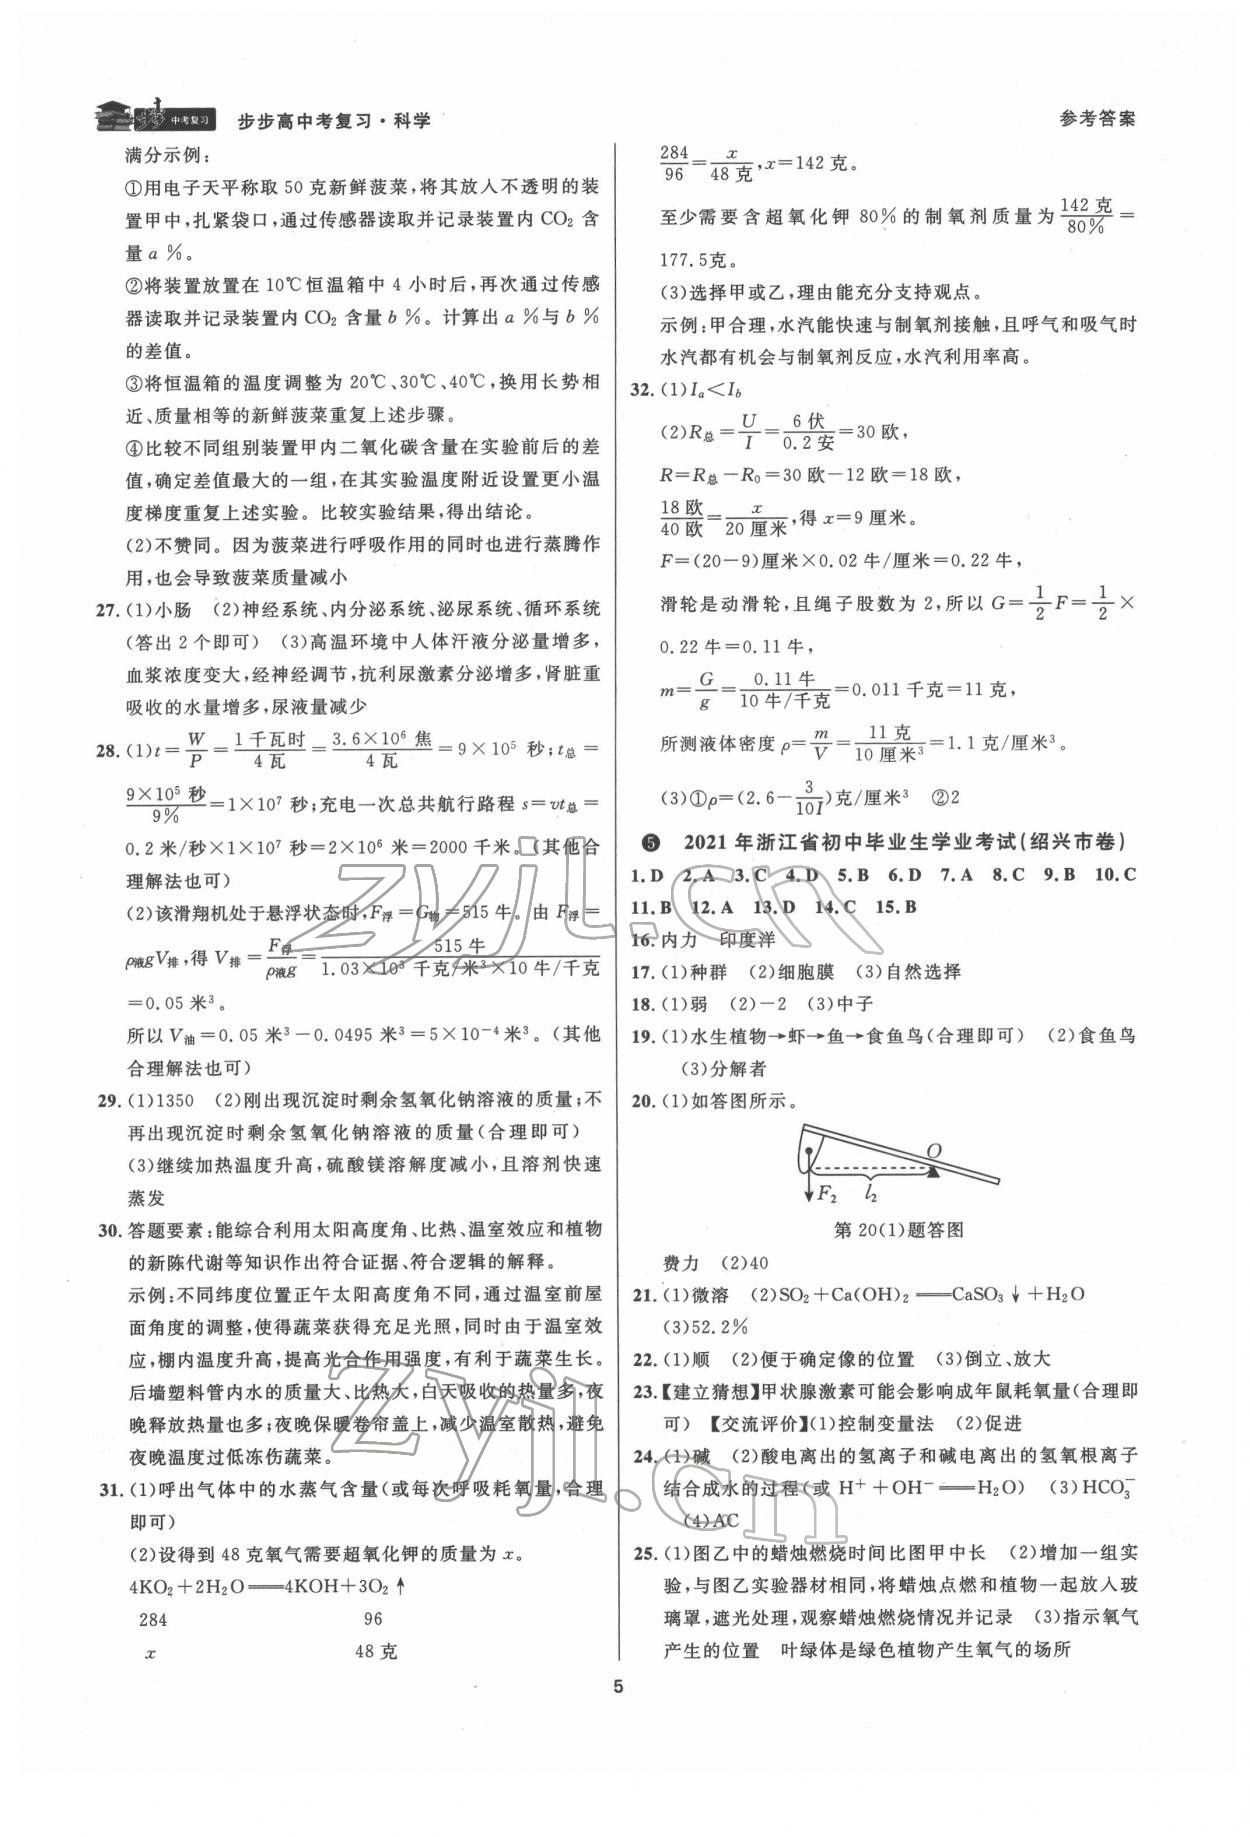 中考复习 步步高中考复习·科学
参考答案
满分示例:
①用电子天平称取 50 克新鲜菠菜,将其放入不透明的装
置甲中,扎紧袋口,通过传感器读取并记录装置内 CO₂ 含
量 a %。
②将装置放置在 10℃恒温箱中 4 小时后,再次通过传感
器读取并记录装置内 CO₂ 含量 b %。计算出 a %与 b %
的差值。
③将恒温箱的温度调整为 20℃、30℃、40℃,换用长势相
近、质量相等的新鲜菠菜重复上述步骤。
④比较不同组别装置甲内二氧化碳含量在实验前后的差
值,确定差值最大的一组,在其实验温度附近设置更小温
度梯度重复上述实验。比较实验结果,得出结论。
(2)不赞同。因为菠菜进行呼吸作用的同时也进行蒸腾作
用,也会导致菠菜质量减小
27. (1)小肠 (2)神经系统、内分泌系统、泌尿系统、循环系统
(答出 2 个即可) (3)高温环境中人体汗液分泌量增多,
血浆浓度变大,经神经调节,抗利尿激素分泌增多,肾脏重
吸收的水量增多,尿液量减少
28. (1)t=W/P=1 千瓦时/4 瓦=3.6×10⁶ 焦/4 瓦=9×10⁵ 秒;t总=
9×10⁵ 秒/9%=1×10⁷ 秒;充电一次总共航行路程 s=vt总=
0.2 米/秒×1×10⁷ 秒=2×10⁶ 米=2000 千米。(其他合
理解法也可)
(2)该滑翔机处于悬浮状态时,F浮=G物=515 牛。由 F浮=
ρ液gV排,得 V排=F浮/ρ液g=515 牛/1.03×10³ 千克/米³×10 牛/千克
=0.05 米³。
所以 V油=0.05 米³-0.0495 米³=5×10⁻⁴ 米³。(其他
合理解法也可)
29. (1)1350 (2)刚出现沉淀时剩余氢氧化钠溶液的质量;不
再出现沉淀时剩余氢氧化钠溶液的质量(合理即可)
(3)继续加热温度升高,硫酸镁溶解度减小,且溶剂快速
蒸发
30. 答题要素:能综合利用太阳高度角、比热、温室效应和植物
的新陈代谢等知识作出符合证据、符合逻辑的解释。
示例:不同纬度位置正午太阳高度角不同,通过温室前屋
面角度的调整,使得蔬菜获得充足光照,同时由于温室效
应,棚内温度升高,提高光合作用强度,有利于蔬菜生长。
后墙塑料管内水的质量大、比热大,白天吸收的热量多,夜
晚释放热量也多;夜晚保暖卷帘盖上,减少温室散热,避免
夜晚温度过低冻伤蔬菜。
31. (1)呼出气体中的水蒸气含量(或每次呼吸耗氧量,合理
即可)
(2)设得到 48 克氧气需要超氧化钾的质量为 x。
4KO₂+2H₂O══4KOH+3O₂↑
284 96
x 48 克
284/96=x/48 克,x=142 克。
至少需要含超氧化钾 80%的制氧剂质量为142 克/80%=
177.5克。
(3)选择甲或乙,理由能充分支持观点。
示例:甲合理,水汽能快速与制氧剂接触,且呼气和吸气时
水汽都有机会与制氧剂反应,水汽利用率高。
32. (1)Iₐ<I_b
(2)R总=U/I=6 伏/0.2 安=30 欧,
R=R总-R₀=30 欧-12 欧=18 欧,
18 欧/40 欧=x/20 厘米,得 x=9 厘米。
F=(20-9)厘米×0.02 牛/厘米=0.22 牛,
滑轮是动滑轮,且绳子股数为 2,所以 G=1/2F=1/2×
0.22 牛=0.11 牛,
m=G/g=0.11 牛/10 牛/千克=0.011 千克=11 克,
所测液体密度 ρ=m/V=11 克/10 厘米³=1.1 克/厘米³。
(3)①ρ=(2.6-3/10I)克/厘米³ ②2
❺ 2021 年浙江省初中毕业生学业考试(绍兴市卷)
1.D 2.A 3.C 4.D 5.B 6.D 7.A 8.C 9.B 10.C
11.B 12.A 13.D 14.C 15.B
16. 内力 印度洋
17. (1)种群 (2)细胞膜 (3)自然选择
18. (1)弱 (2)-2 (3)中子
19. (1)水生植物→虾→鱼→食鱼鸟(合理即可) (2)食鱼鸟
(3)分解者
20. (1)如答图所示。
O
F₂ l₂
第 20(1)题答图
费力 (2)40
21. (1)微溶 (2)SO₂+Ca(OH)₂══CaSO₃↓+H₂O
(3)52.2%
22. (1)顺 (2)便于确定像的位置 (3)倒立、放大
23. 【建立猜想】甲状腺激素可能会影响成年鼠耗氧量(合理即
可) 【交流评价】(1)控制变量法 (2)促进
24. (1)碱 (2)酸电离出的氢离子和碱电离出的氢氧根离子
结合成水的过程(或 H⁺+OH⁻══H₂O) (3)HCO₃⁻
(4)AC
25. (1)图乙中的蜡烛燃烧时间比图甲中长 (2)增加一组实
验,与图乙实验器材相同,将蜡烛点燃和植物一起放入玻
璃罩,遮光处理,观察蜡烛燃烧情况并记录 (3)指示氧气
产生的位置 叶绿体是绿色植物产生氧气的场所
5
zyjl.cn
zyjl.cn